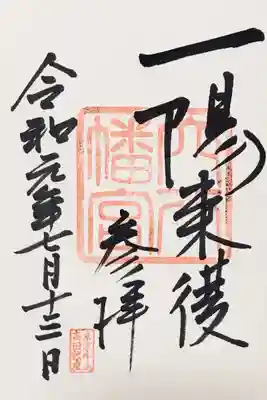 一陽来復
穴八
幡宮
参拝
令和元年七月十三日